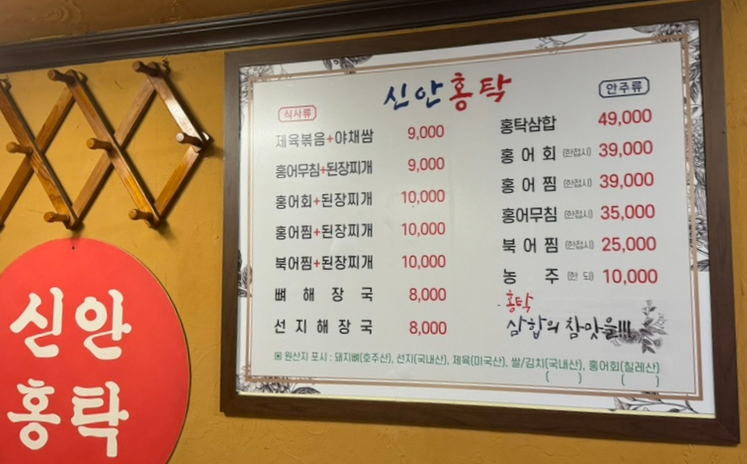 신안홍탁
식사류
제육볶음+야채쌈 9,000
홍어무침+된장찌개 9,000
홍어회+된장찌개 10,000
홍어찜+된장찌개 10,000
북어찜+된장찌개 10,000
뼈해장국 8,000
선지해장국 8,000
안주류
홍탁삼합 49,000
홍어회 (한접시) 39,000
홍어찜 (한접시) 39,000
홍어무침 (한접시) 35,000
북어찜 (한접시) 25,000
농주 (한 되) 10,000
홍탁
삼합의 참맛을!!!
▣ 원산지 표시 : 돼지뼈(호주산), 선지(국내산), 제육(미국산), 쌀/김치(국내산), 홍어회(칠레산)
( ) ( )
신안
홍탁